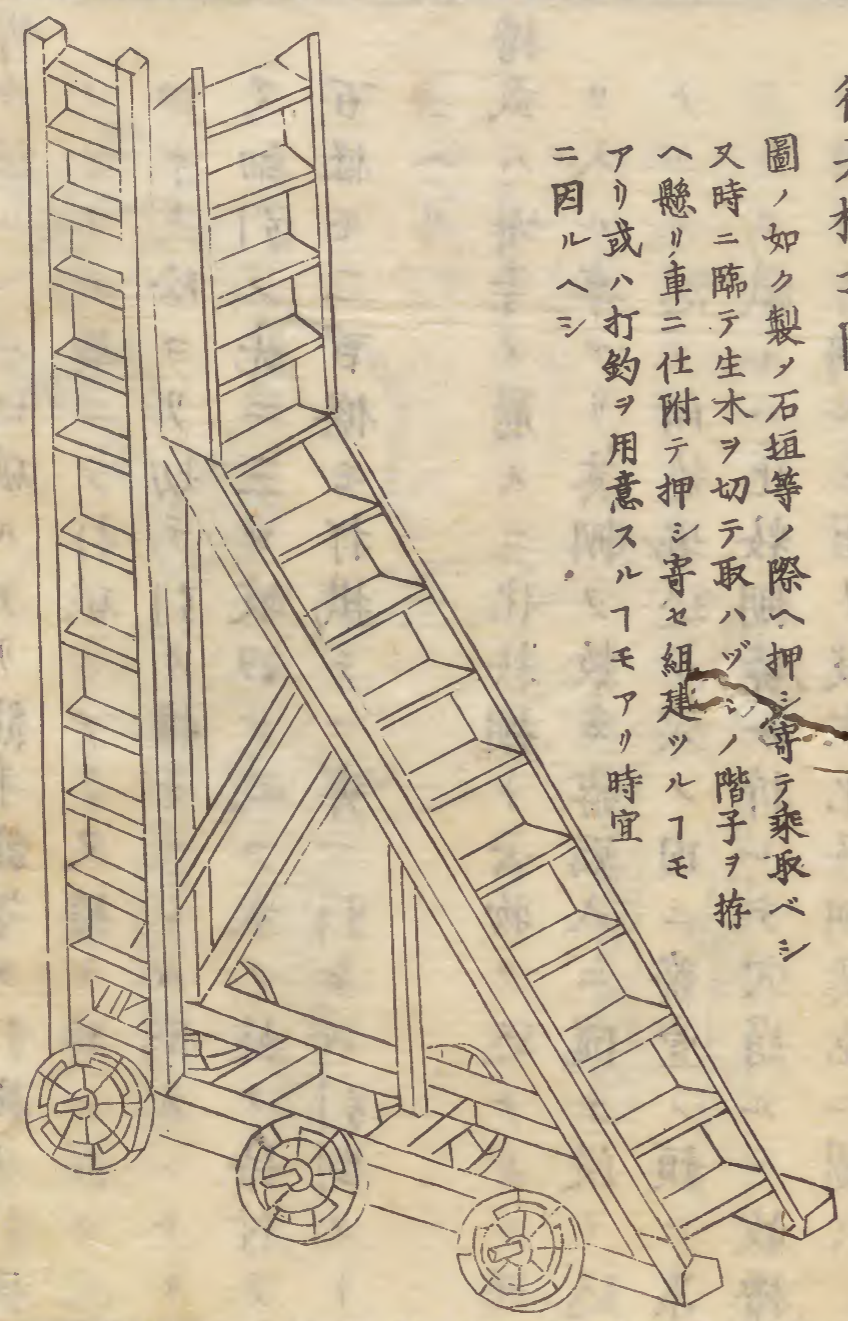 圖ノ如ク製メ石垣等ノ際ヘ押シ寄テ乗取ベシ
又時ニ臨テ生木ヲ切テ取ハヅシノ階子ヲ拵
ヘ懸リ車ニ仕附テ押シ寄セ組建ツルヿモ
アリ或ハ打鈎ヲ用意スルヿモアリ時宜
ニ因ルヘシ